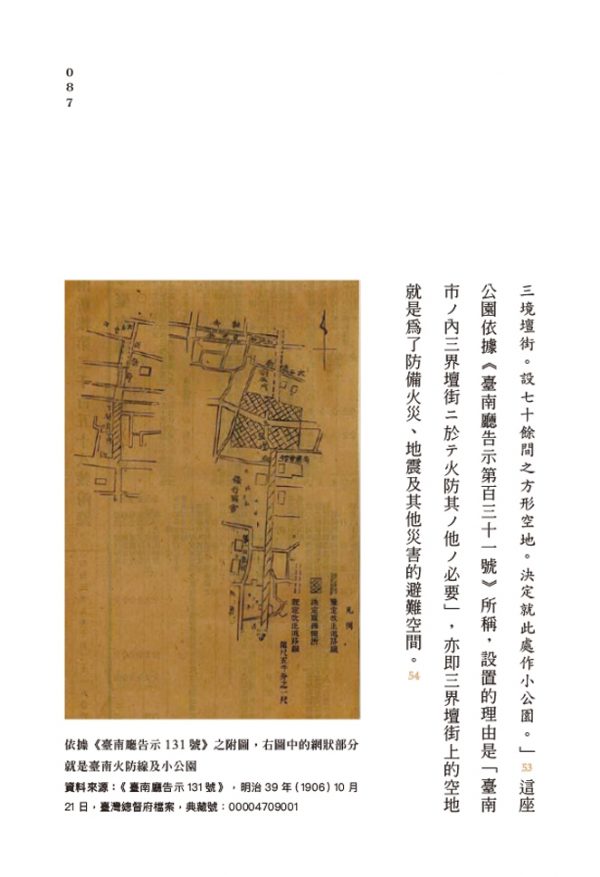 087
三境壇街。設七十餘間之方形空地。決定就此處作小公園。」53 這座
公園依據《臺南廳告示第百三十一號》所稱，設置的理由是「臺南
市ノ內三界壇街ニ於テ火防其ノ他ノ必要」，亦即三界壇街上的空地
就是為了防備火災、地震及其他災害的避難空間。54
凡例
縮尺五千分之一
依據《臺南廳告示 131 號》之附圖，右圖中的網狀部分
就是臺南火防線及小公園
資料來源：《臺南廳告示 131 號》，明治 39 年 (1906) 10 月
21 日，臺灣總督府檔案，典藏號：00004709001